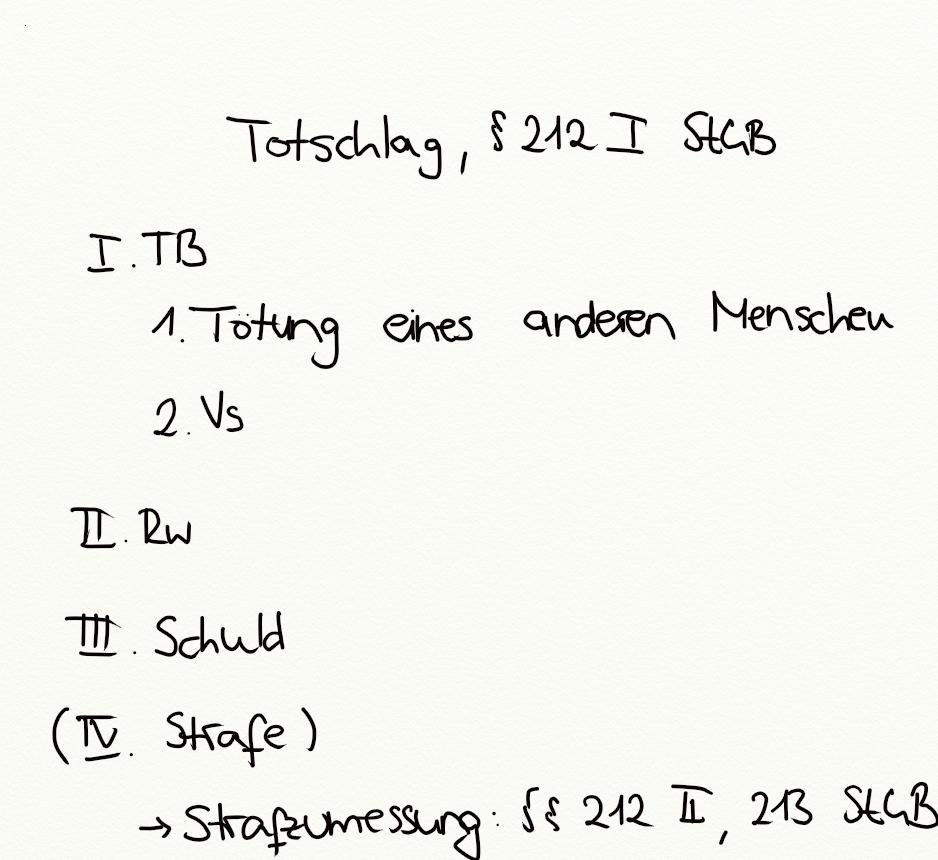 Totschlag, § 212 I StGB
I. TB
1. Tötung eines anderen Menschen
2. Vs
II. Rw
III. Schuld
(IV. Strafe)
→ Strafzumessung: §§ 212 II, 213 StGB